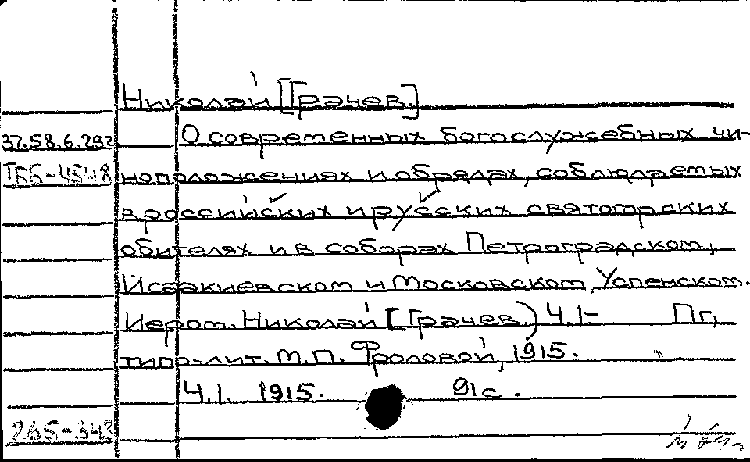 Николай [Грачев.]
37.58.6.292
О современных богослужебных чи-
ноположениях и обрядах, соблюдаемых
в российских и русских святогорских
обителях и в соборах Петроградском,
Исаакиевском и Московском Успенском.
Иером. Николай [Грачев.) Ч.1- Пг,
типо-лит. М.П. Фроловой, 1915.
Ч.1. 1915. 91с.
265-342